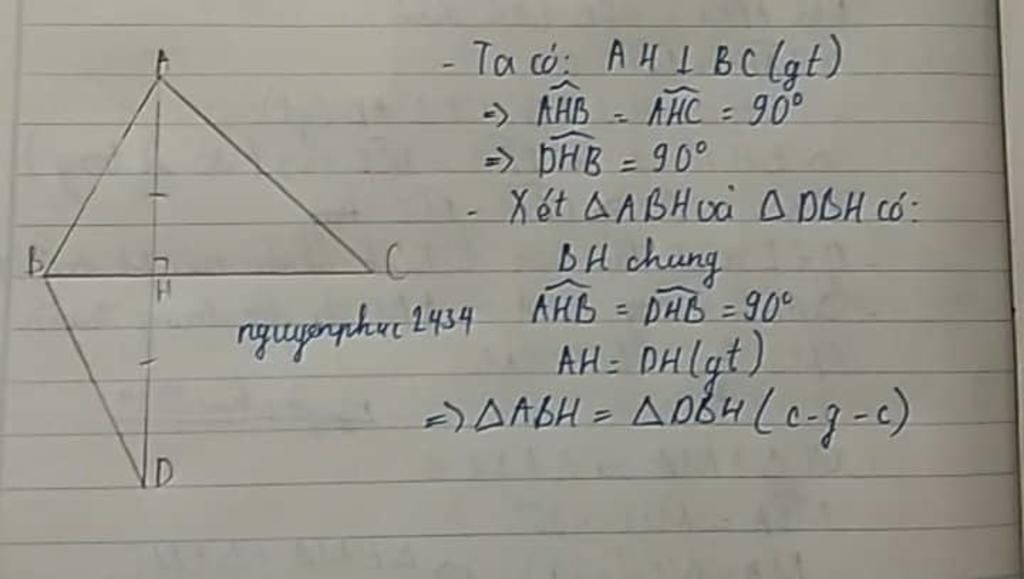 A
B
C
H
D
nguyenphuc2434
- Ta có: AH ⊥ BC (gt)
=> \widehat{AHB} = \widehat{AHC} = 90°
=> \widehat{DHB} = 90°
- Xét △ABH và △DBH có:
BH chung
\widehat{AHB} = \widehat{DHB} = 90°
AH = DH (gt)
=> △ABH = △DBH (c-g-c)